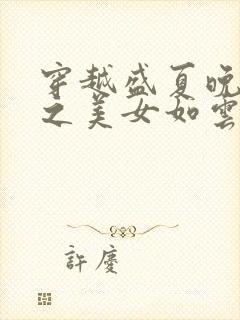 穿越盛夏晚
之美女如雲
許慶